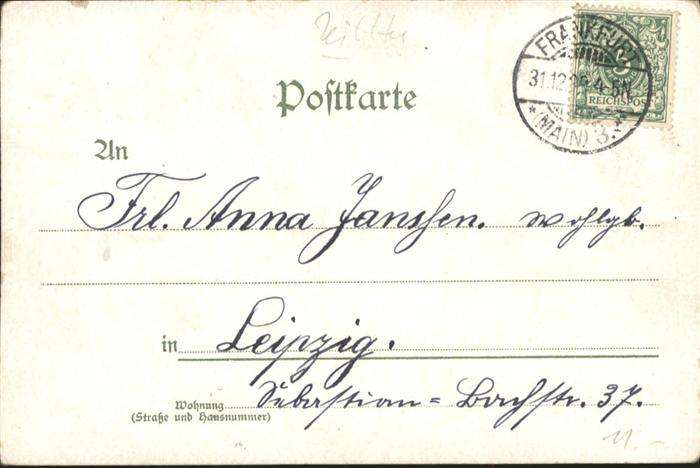 FRANKFURT
31.12.98.4-5N.
(MAIN) 3.
REICHSPOST
Postkarte
An
Frl. Anna Janssen. wohlgb.
in Leipzig.
Wohnung Sebastian-Bachstr. 37.
(Straße und Hausnummer)
11.-